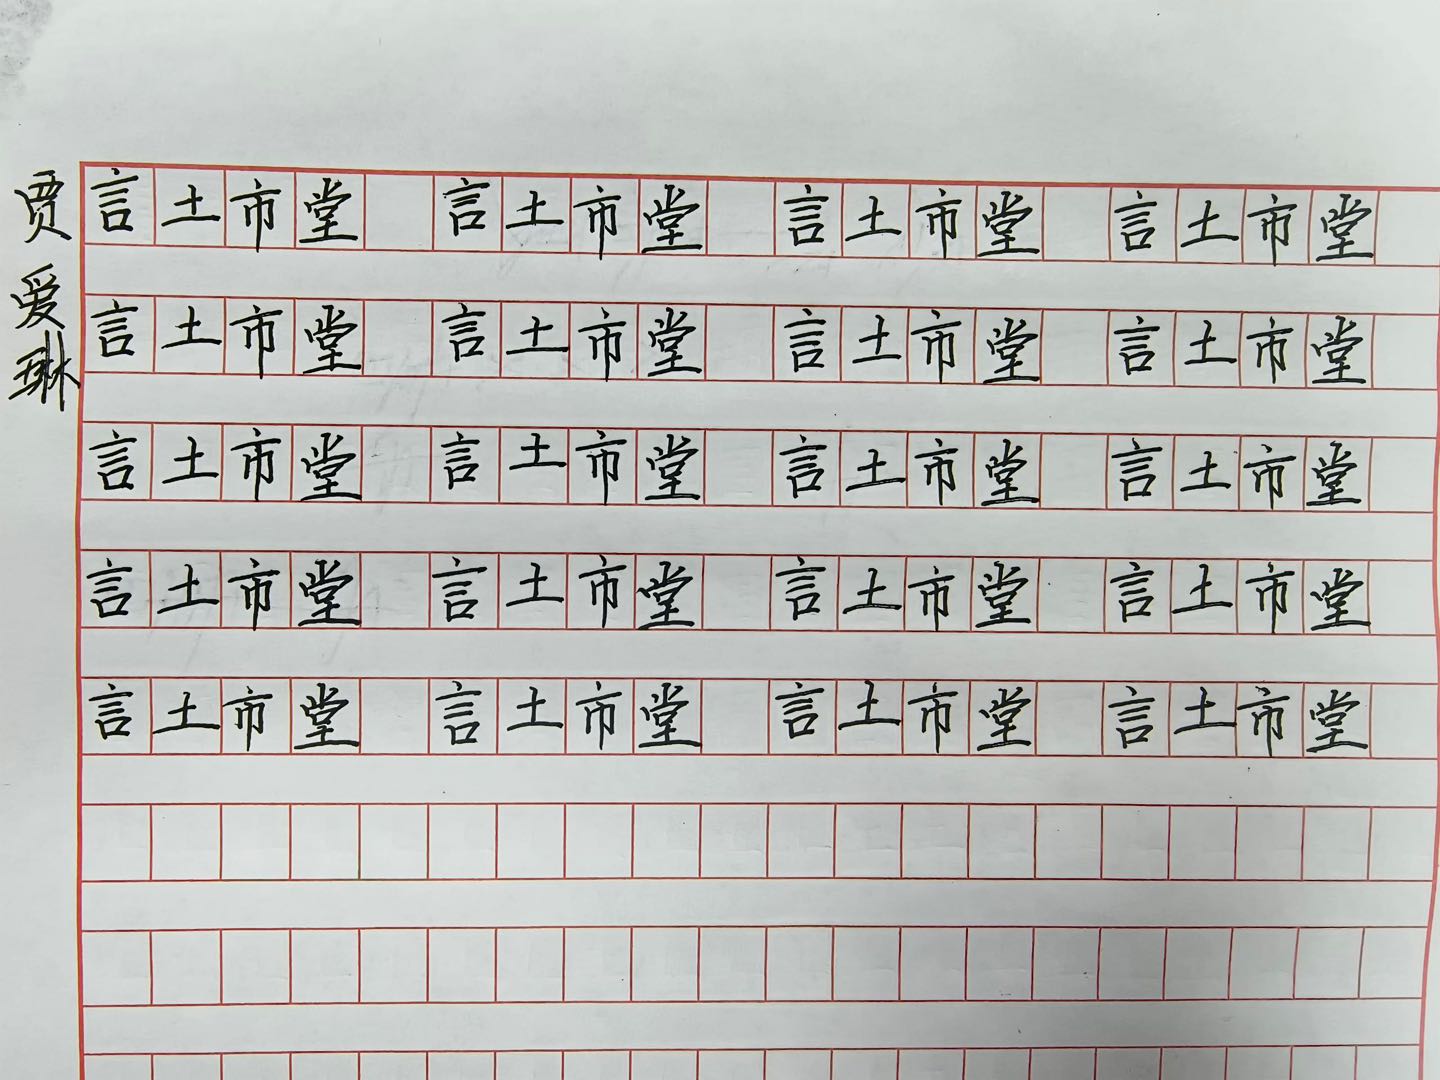 贾爱琳
言土市堂 言土市堂 言土市堂 言土市堂
言土市堂 言土市堂 言土市堂 言土市堂
言土市堂 言土市堂 言土市堂 言土市堂
言土市堂 言土市堂 言土市堂 言土市堂
言土市堂 言土市堂 言土市堂 言土市堂